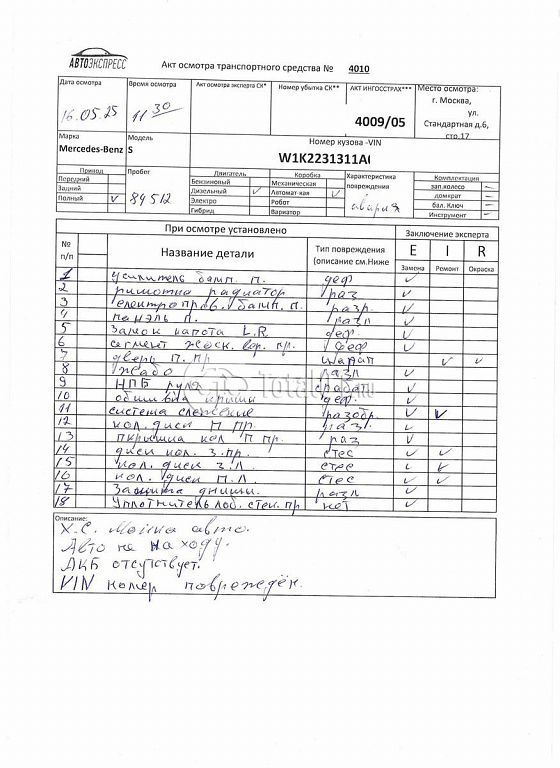 АВТОЭКСПРЕСС
Акт осмотра транспортного средства № 4010
Дата осмотра
16.05.25
Время осмотра
11 30
Акт осмотра эксперта СК*
Номер убытка СК**
АКТ ИНГОССТРАХ***
4009/05
Место осмотра:
г. Москва,
ул.
Стандартная д.6,
стр.17
Марка
Mercedes-Benz
Модель
S
Номер кузова -VIN
W1K2231311A
Привод
Передний
Задний
Полный V
Пробег
84512
Двигатель
Бензиновый
Дизельный V
Электро
Гибрид
Коробка
Механическая
Автомат-кая V
Робот
Вариатор
Характеристика
повреждения
авария
Комплектация
зап.колесо –
домкрат –
бал. Ключ –
Инструмент –
При осмотре установлено
Заключение эксперта
№
п/п
Название детали
Тип повреждения
(описание см.Ниже
E I R
Замена Ремонт Окраска
1 усилитель бамп. п. деф V
2 радиатор раз V
3 бамп. п. разр. V
4 панэль п. разл V
5 Замок капота L.R деф. V
6 сегмент жестк. пр. деф V
7 дверь П. пр царап V V
8 жабо разл V
9 НПБ руля срабат V
10 обшивка крыши деф. V
11 система слежение разобр. V
12 кол. диск П пр. раз. V
13 пкрышка кол П пр. раз V
14 диск кол. з.пр. стес V V
15 кол. диск з.Л. стес V
16 кол. диск П.Л. стес V V
17 Защита днища. разл V
18 Уплотнитель лоб. стек. пр нет V
TotalO1.ru
Описание:
Х.С. Мойка авто.
Авто не на ходу.
АКБ отсутствует.
VIN номер повреждён.